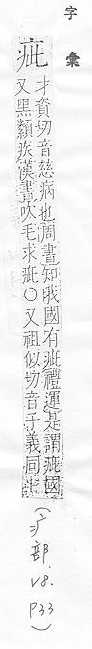 字彙
疵
才資切音慈病也周書知我國有疵禮運是謂疵國
又黑纇族漢書吹毛求疵○又祖似切音子義同上
(疒部.V8.P33)